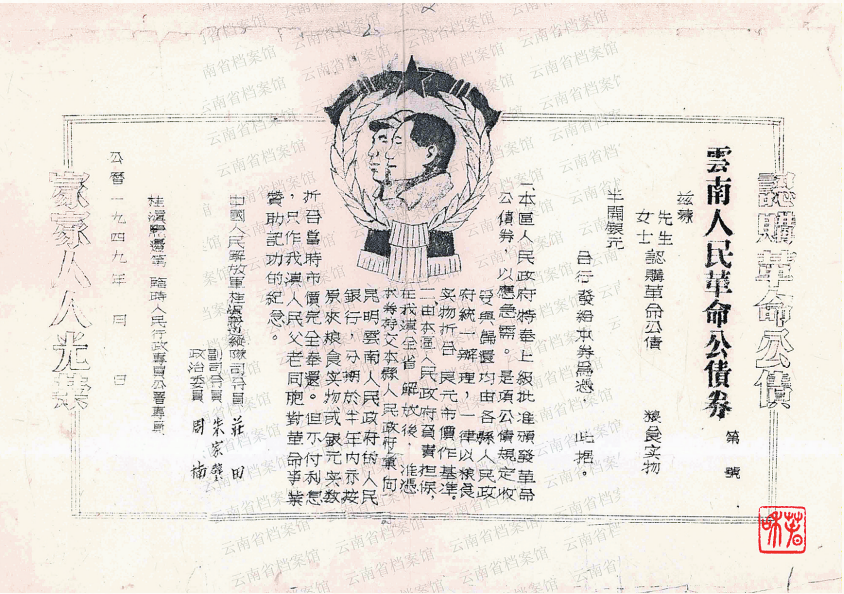 認購革命公債
雲南人民革命公債券
第 號
茲據
先生
女士
認購革命公債
粮食实物
半開銀元
合行發給本券爲憑，此据。
一、本區人民政府特奉上級批准頒發革命
公債券，以應急需。是項公債規定收
受與歸還均由各縣人民政
府統一辦理，一律以粮食
实物折合銀元市價作基準。
二、由本區人民政府負責担保，
在我滇全省解放後，准憑
本券持交本縣人民政府兼向
昆明雲南人民政府的人民
銀行，分期於半年內亦按
原來粮食实物或銀元实数
折合當時市價完全奉還。但不付利息
，只作我滇人民父老同胞對革命事業
贊助記功的紀念。
中國人民解放軍桂滇黔邊縱隊司令員 莊田
副司令員 朱家璧
政治委員 周楠
桂滇黔邊第 臨時人民行政專員公署專員
公曆一九四九年 月 日
家家人人光榮
云南省档案馆